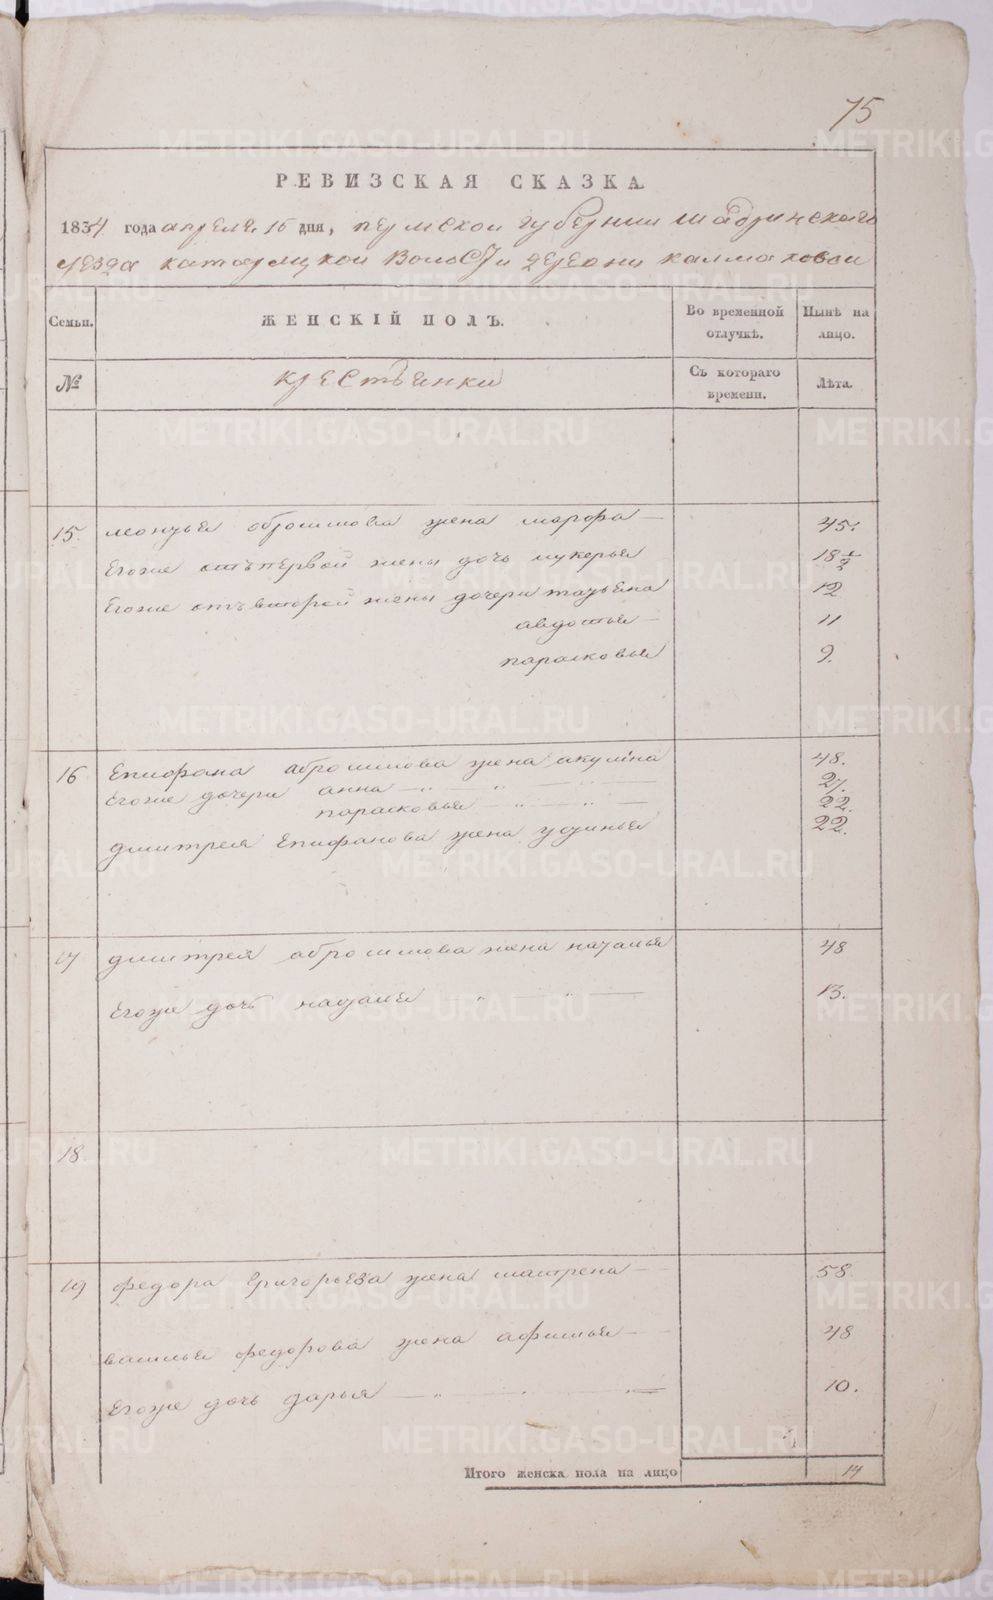 75
РЕВИЗСКАЯ СКАЗКА
1834 года апреля 15 дня, пермской губернии Шадринскаго
уезда катарицкой Волости деревни калмаковой
Семьи. ЖЕНСКІЙ ПОЛЪ. Во временной отлучкѣ. Нынѣ на лицо.
№ крестьянки Съ котораго времени. Лѣта.
15. леонтья аброшмова жена марфа 45.
Егоже отъпервой жены дочь лукерья 18 1/2
Егоже отъвторой жены дочери татьяна 12
авдотья 11
парасковья 9.
16 Епифана аброшимова жена акулина 48.
Егоже дочери анна 27.
парасковья 22.
дмитрея Епифанова жена устинья 22.
17 дмитрея аброшимова жена наталья 48
Егоже дочь наталья 13.
18.
19 федора григорьева жена матрена 58.
василья федорова жена афимья 48
Егоже дочь дарья 10.
Итого женска пола на лицо 14
METRIKI.GASO-URAL.RU